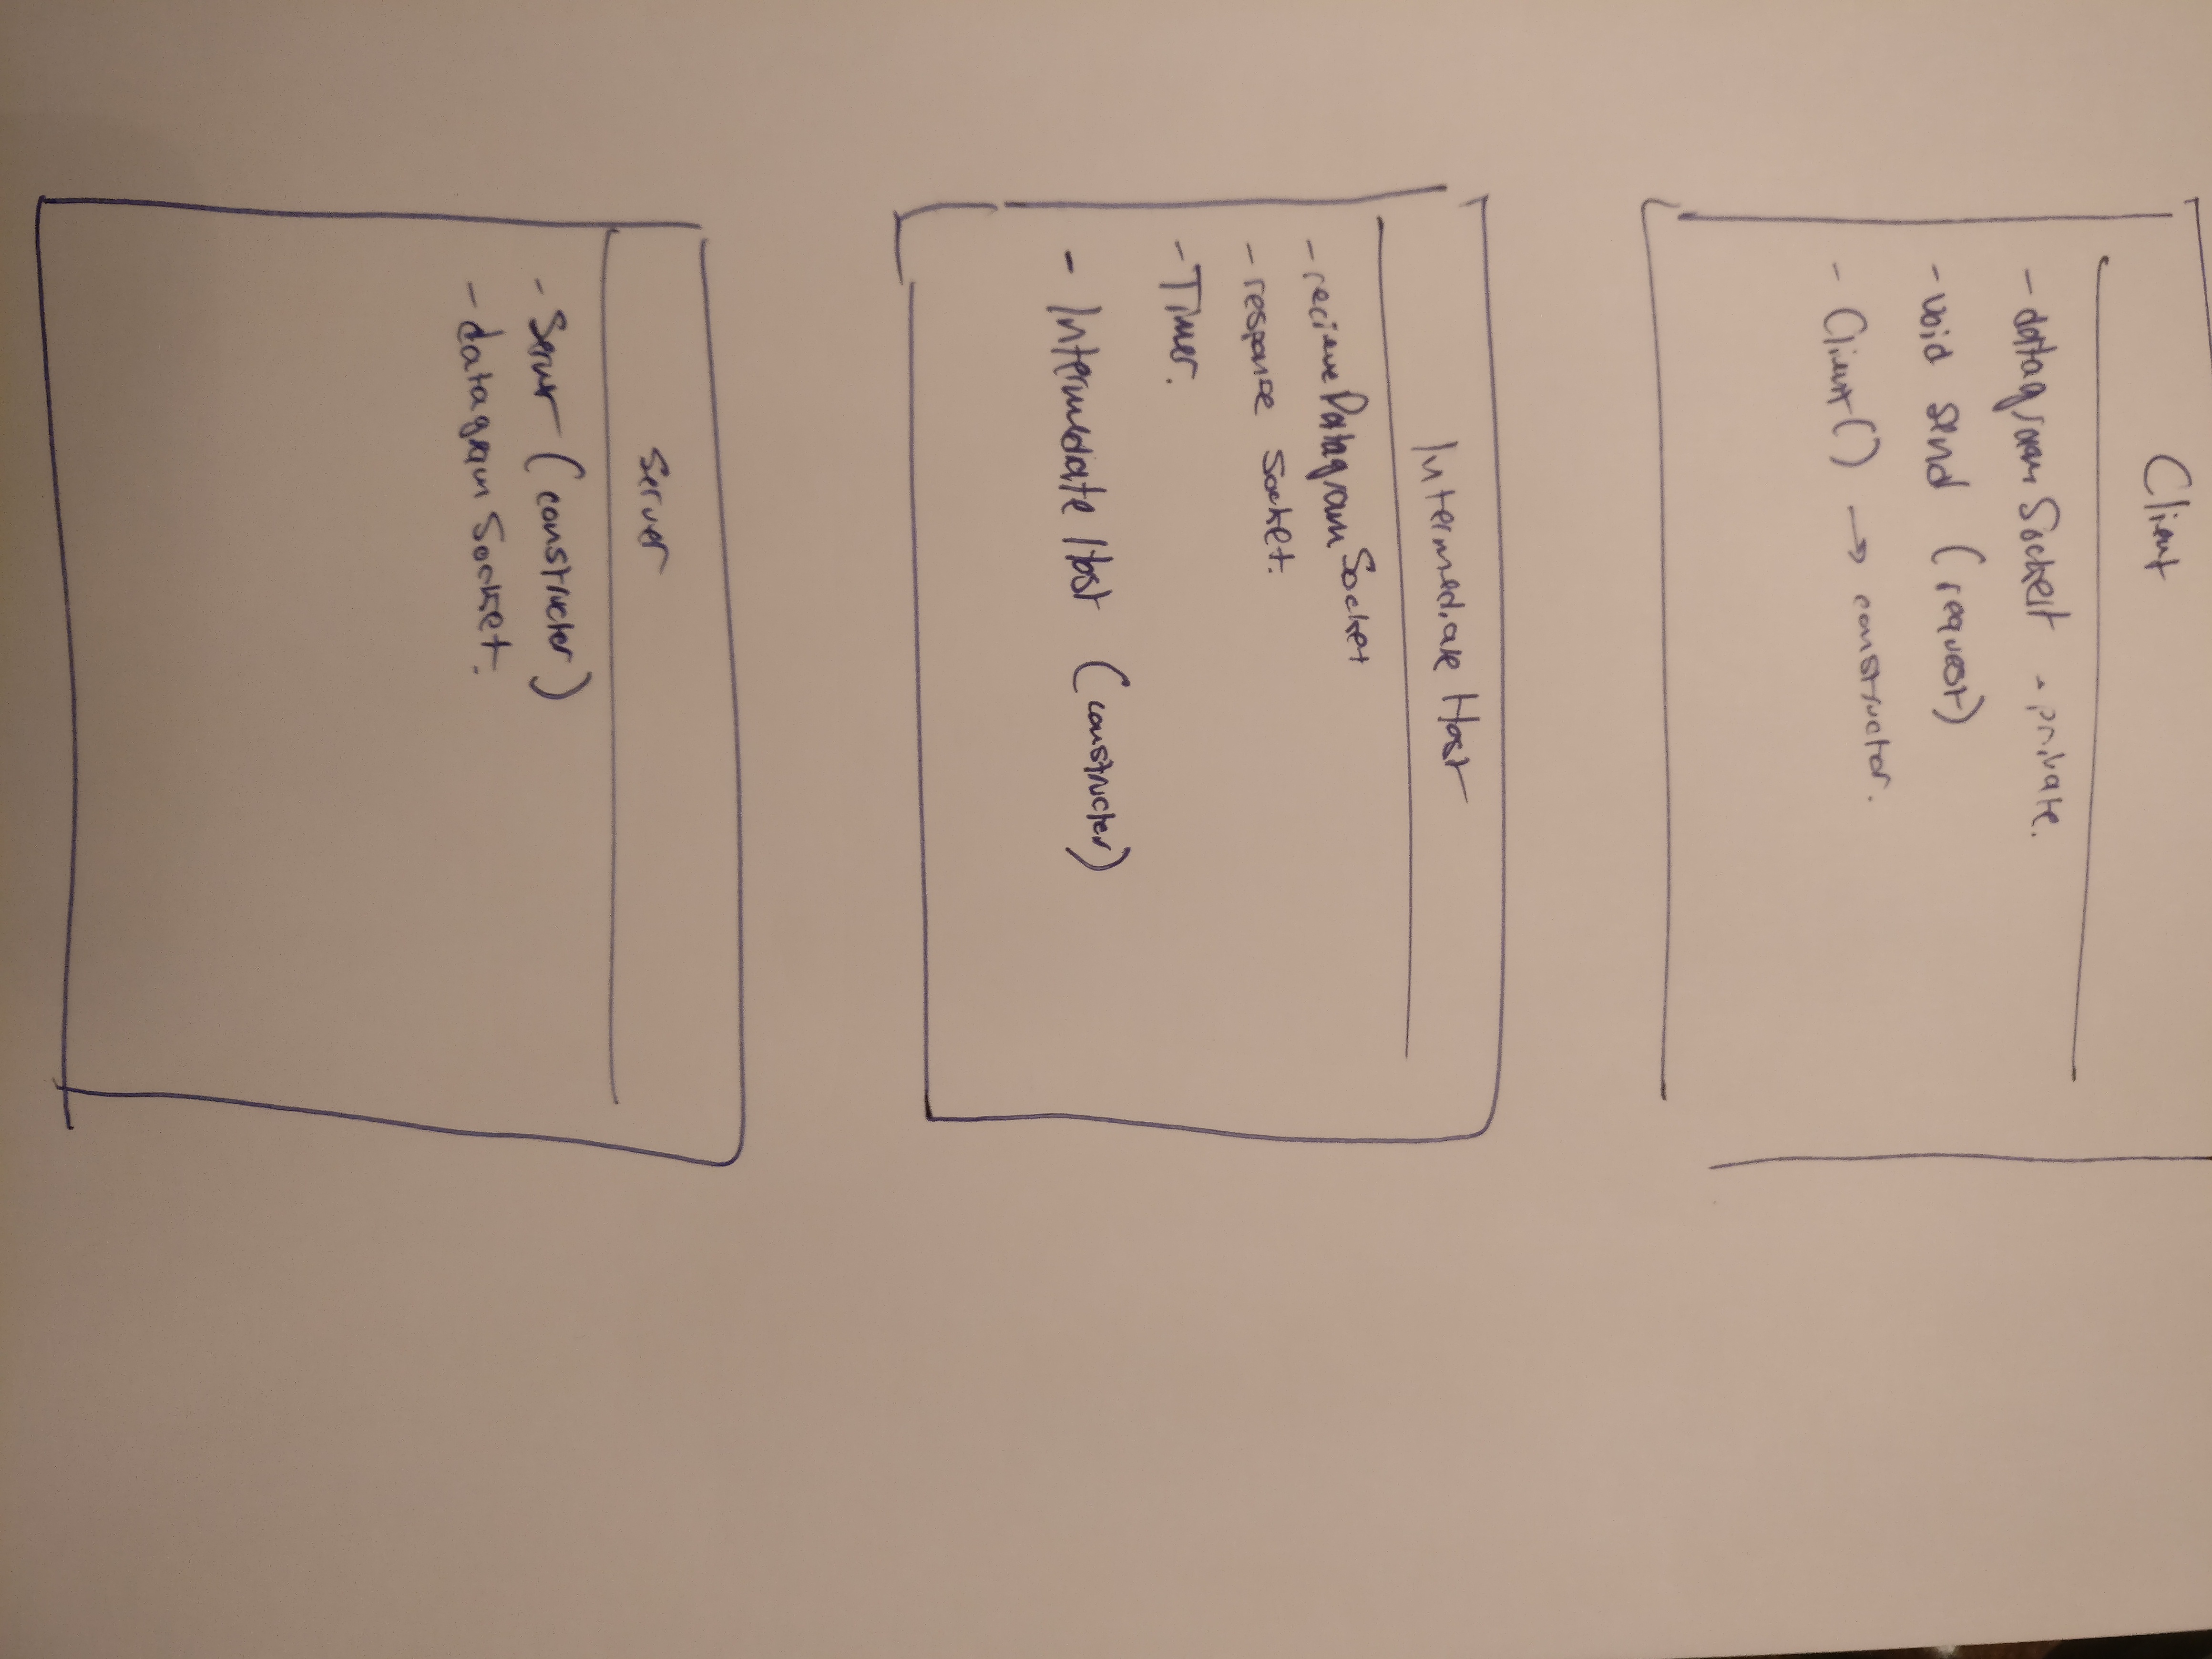 Client
- datagramSocket - private.
- void send (request)
- Client() → constructor.
Intermediate Host
- recieveDatagramSocket
- response socket.
- Timer.
- Intermediate Host (constructer)
Server
- Server (constructer)
- datagram Socket.